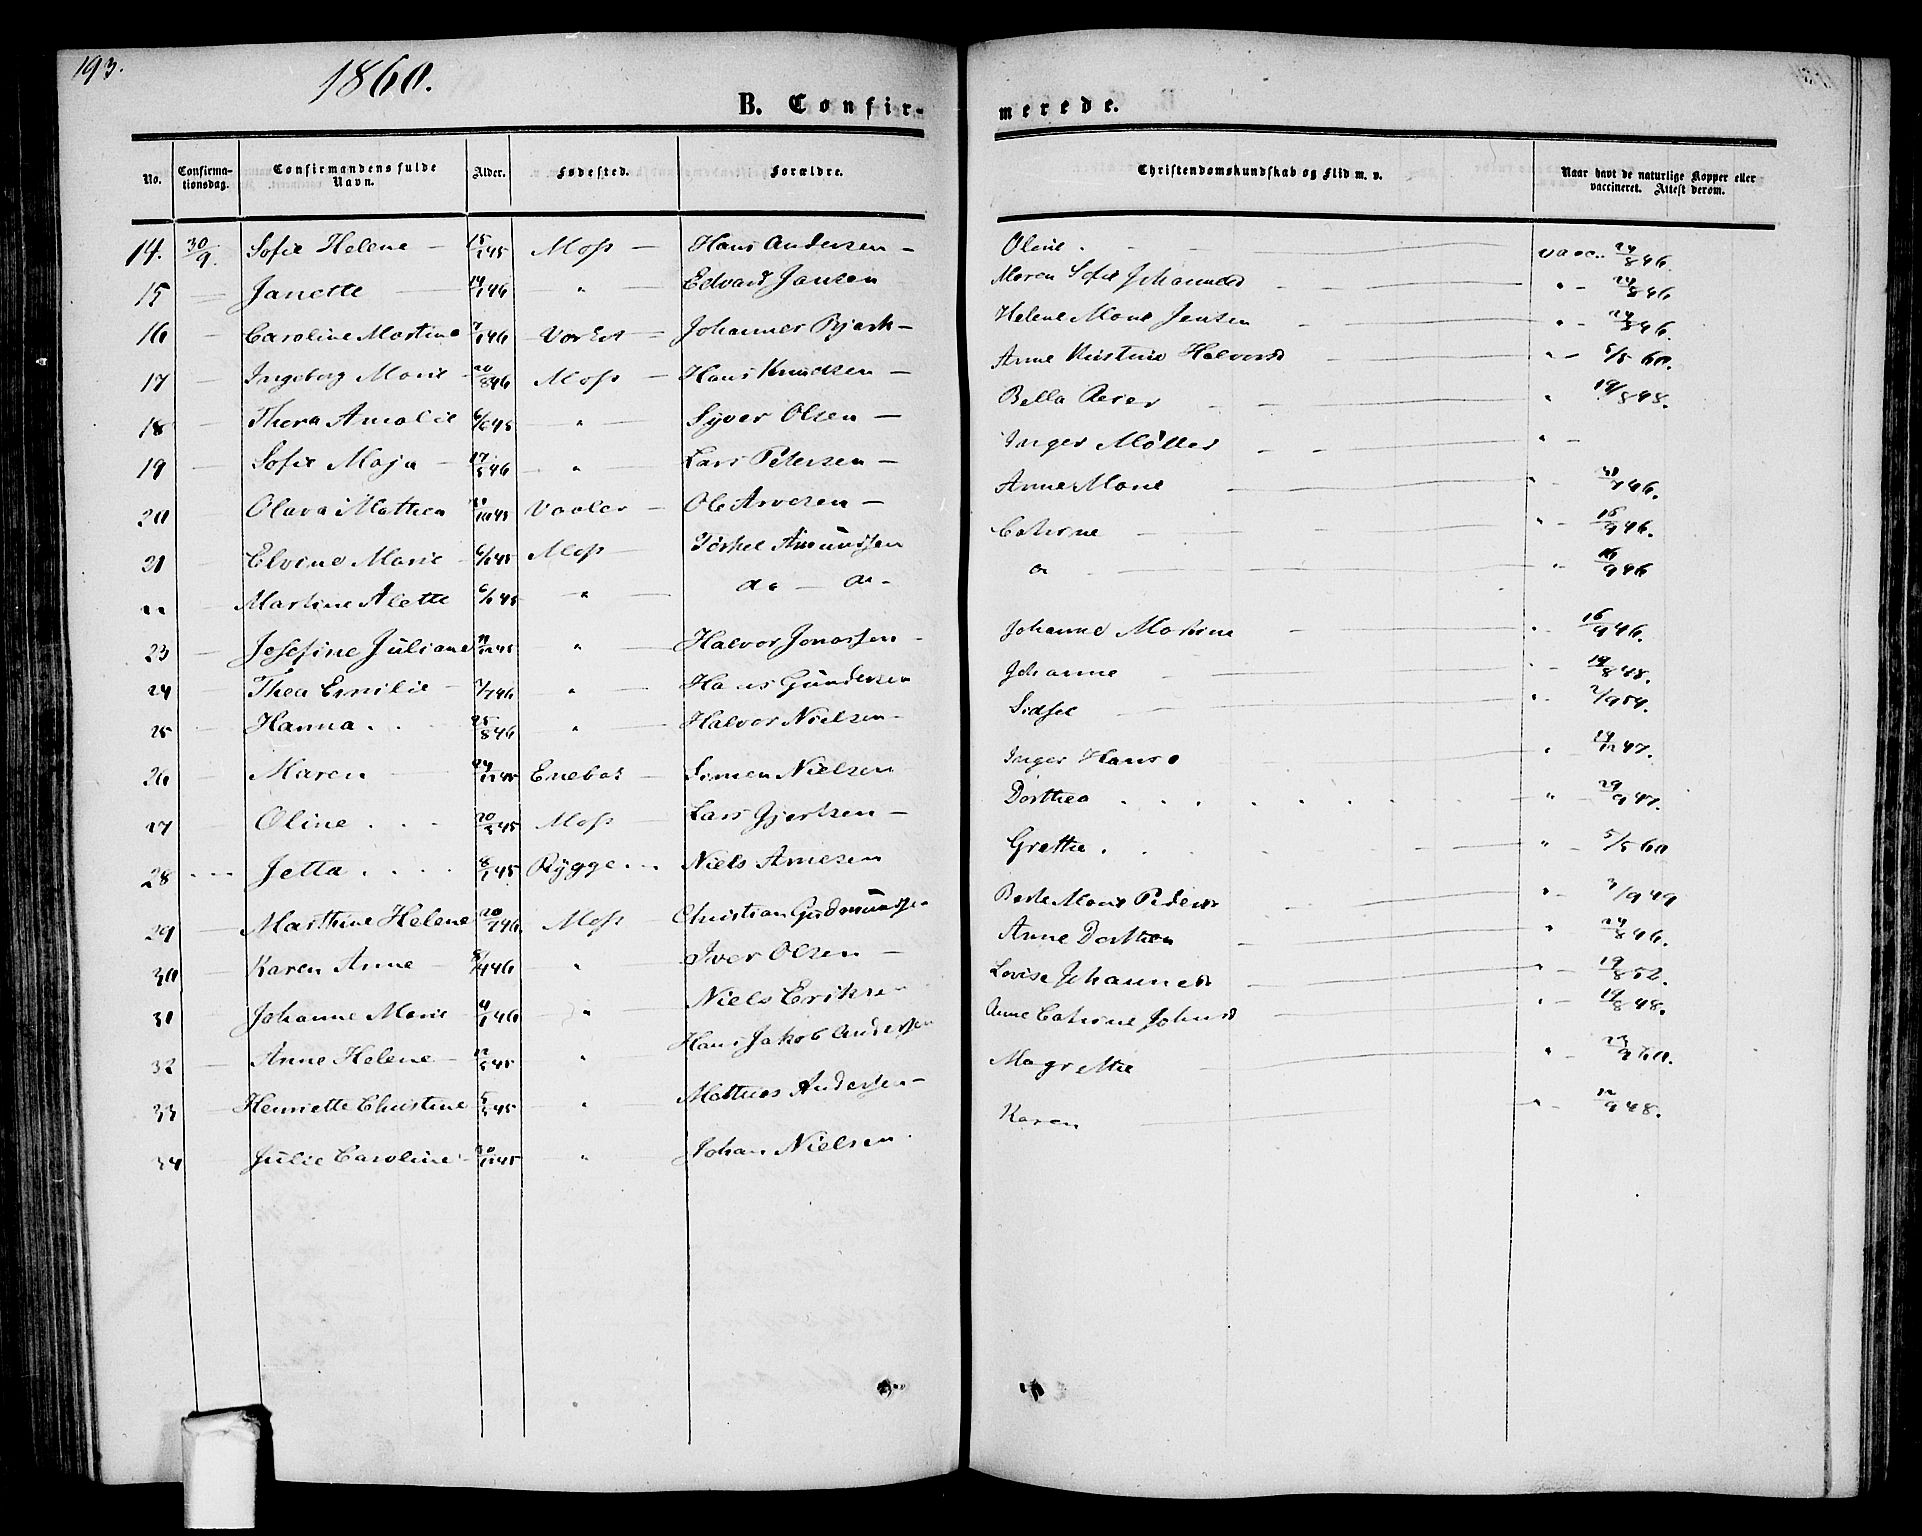 193.
1860.
B. Confirmerede.
No. Confirmationsdag. Confirmandens fulde Navn. Alder. Fødested. Forældre. Christendomskundskab og Flid m. v. Naar havt de naturlige Kopper eller vaccineret. Attest derom.
14. 30/9. Sofie Helene — 845 Moss — Hans Andersen — Oline . vacc. 24/8 46.
15 — Janette — 14/1 46 " Edvard Jansen Maren Sofie Johannesd " - 24/8 46
16 — Caroline Martine 146 — Johannes Bjerk — Helene Marie Jensen " - 24/8 46.
17 — Ingeborg Marie 20/8 46 Moss — Hans Knudsen — Anne Kristine Halvorsd " - 5/5 60.
18 — Thora Amalie " Syver Olsen — Bella " 19/8 48.
19 — Sofie Maja — 17/5 46 " Lars Petersen — Inger Möller " -
20 — Olava Mathea Vaaler — Ole Arvesen — Anne Marie " - 46.
21 — Elvine Marie Moss — Torkel Amundsen Catrine " - 16/9 46.
22 — Martine Alette " do — do — " - 16/9 46
23 — Josefine Juliane " Halvor Jonassen — Johanne " - 16/9 46.
24 — Thea Emilie — 46 " Hans Gundersen Johanne " - 19/8 48.
25 Hanna . . 25/8 46 " Halvor Nielsen — Sidsel " - 2/9 59.
26 — Maren 45 Enebak — Simen Nielsen Inger Hans " - 19/12 47.
27 — Oline . . . 20/3 45 Moss — Lars Gjertsen — Dorthea . . . " - 29/9 47.
28 . . . Jetta . . . . 8/1 45 Rygge . . . Niels Arnesen Grethe . " - 5/5 60
29 — Marthine Helene 20/1 46. Moss Christian Gudmundsen Berte Marie Pedersd " - 3/9 49
30 — Karen Anne — 46 " Iver Olsen — Anne Dorthea " 24/8 46.
31 — Johanne Marie — 4/1 46 " Niels Eriksen Lovise Johannesd " - 19/8 52.
32 — Anne Helene — 45 " Hans Jakob Andersen Anne Catrine Johnsd " - 19/8 48.
33 — Henriette Christine 5/3 45 " Mathias Andersen — Magrethe " - 23/9 60.
34 Julie Caroline — 30/12 45 " Johan Nielsen . Karen " - 12/9 48.